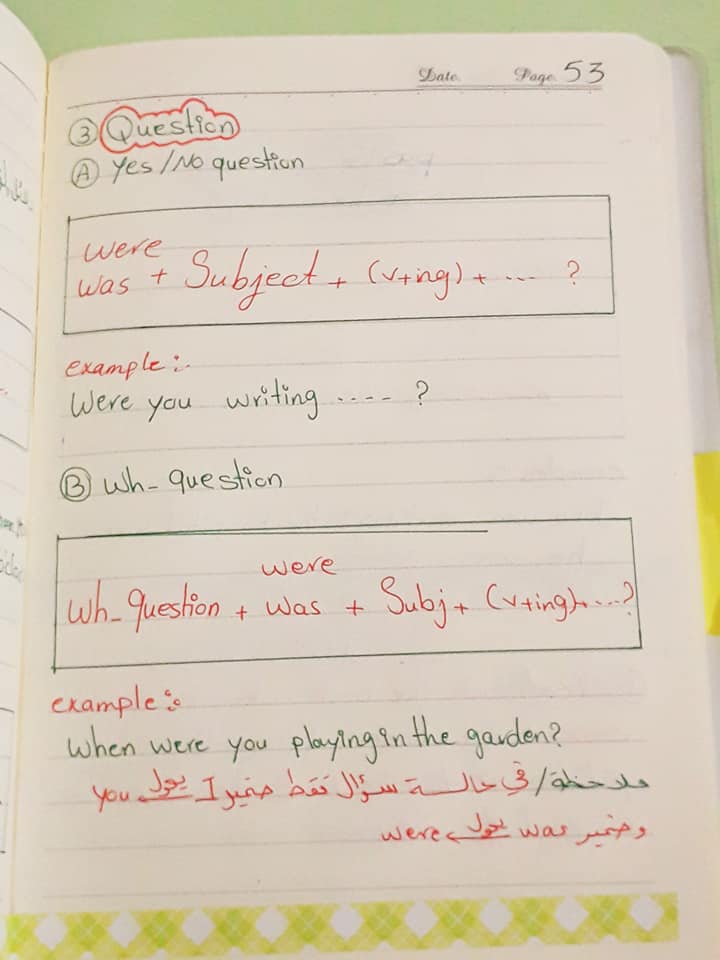 Date Page 53
③ Question
Ⓐ Yes/No question
were
was + Subject + (v+ing) + ... ?
example:
Were you writing ---- ?
Ⓑ Wh_ question
were
Wh_ Question + was + Subj + (v+ing)+...?
example:
When were you playing in the garden?
ملاحظة/ في حالة سؤال فقط ضمير I يحول you
وضمير was يحول were